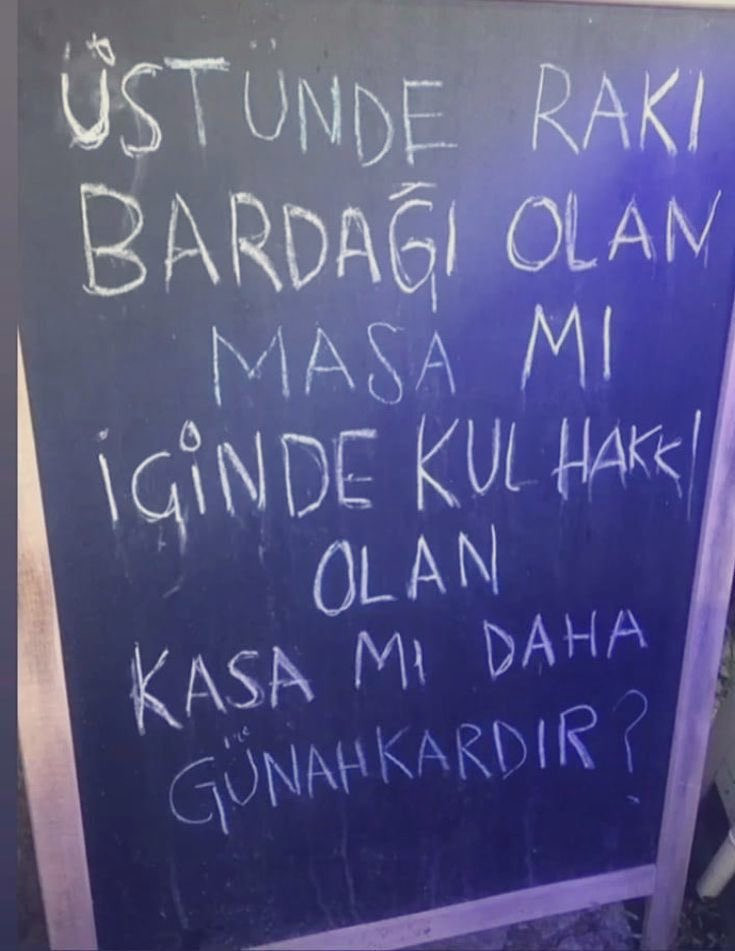 ÜSTÜNDE RAKI
BARDAĞI OLAN
MASA MI
İÇİNDE KUL HAKKI
OLAN
KASA MI DAHA
GÜNAHKARDIR?